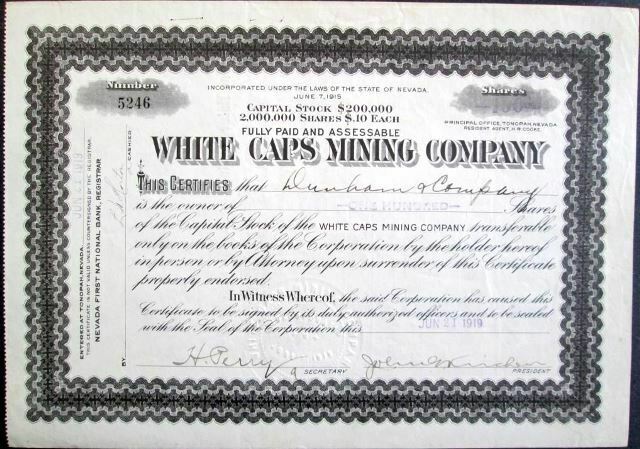 Number
5246
INCORPORATED UNDER THE LAWS OF THE STATE OF NEVADA.
JUNE 7, 1915
CAPITAL STOCK $200,000
2,000,000 SHARES $.10 EACH
FULLY PAID AND ASSESSABLE
Shares
PRINCIPAL OFFICE, TONOPAH, NEVADA
RESIDENT AGENT, H.R. COOKE.
WHITE CAPS MINING COMPANY
THIS CERTIFIES that Dunham & Company
is the owner of —ONE HUNDRED— Shares
of the Capital Stock of the WHITE CAPS MINING COMPANY transferable
only on the books of the Corporation by the holder hereof
in person or by Attorney upon surrender of this Certificate
properly endorsed.
In Witness Whereof, the said Corporation has caused this
Certificate to be signed by its duly authorized officers and to be sealed
with the Seal of the Corporation this JUN 21 1919
H. Perry
SECRETARY
PRESIDENT
ENTERED AT TONOPAH, NEVADA.
JUN 1919
THIS CERTIFICATE IS NOT VALID UNLESS COUNTERSIGNED BY THE REGISTRAR
NEVADA FIRST NATIONAL BANK, REGISTRAR
BY
CASHIER